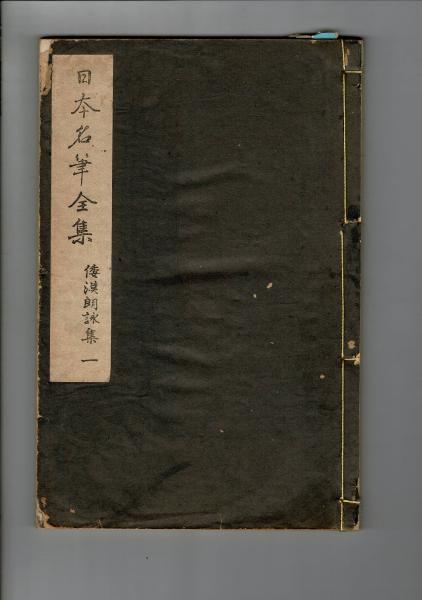 日本名筆全集
倭漢朗詠集 一